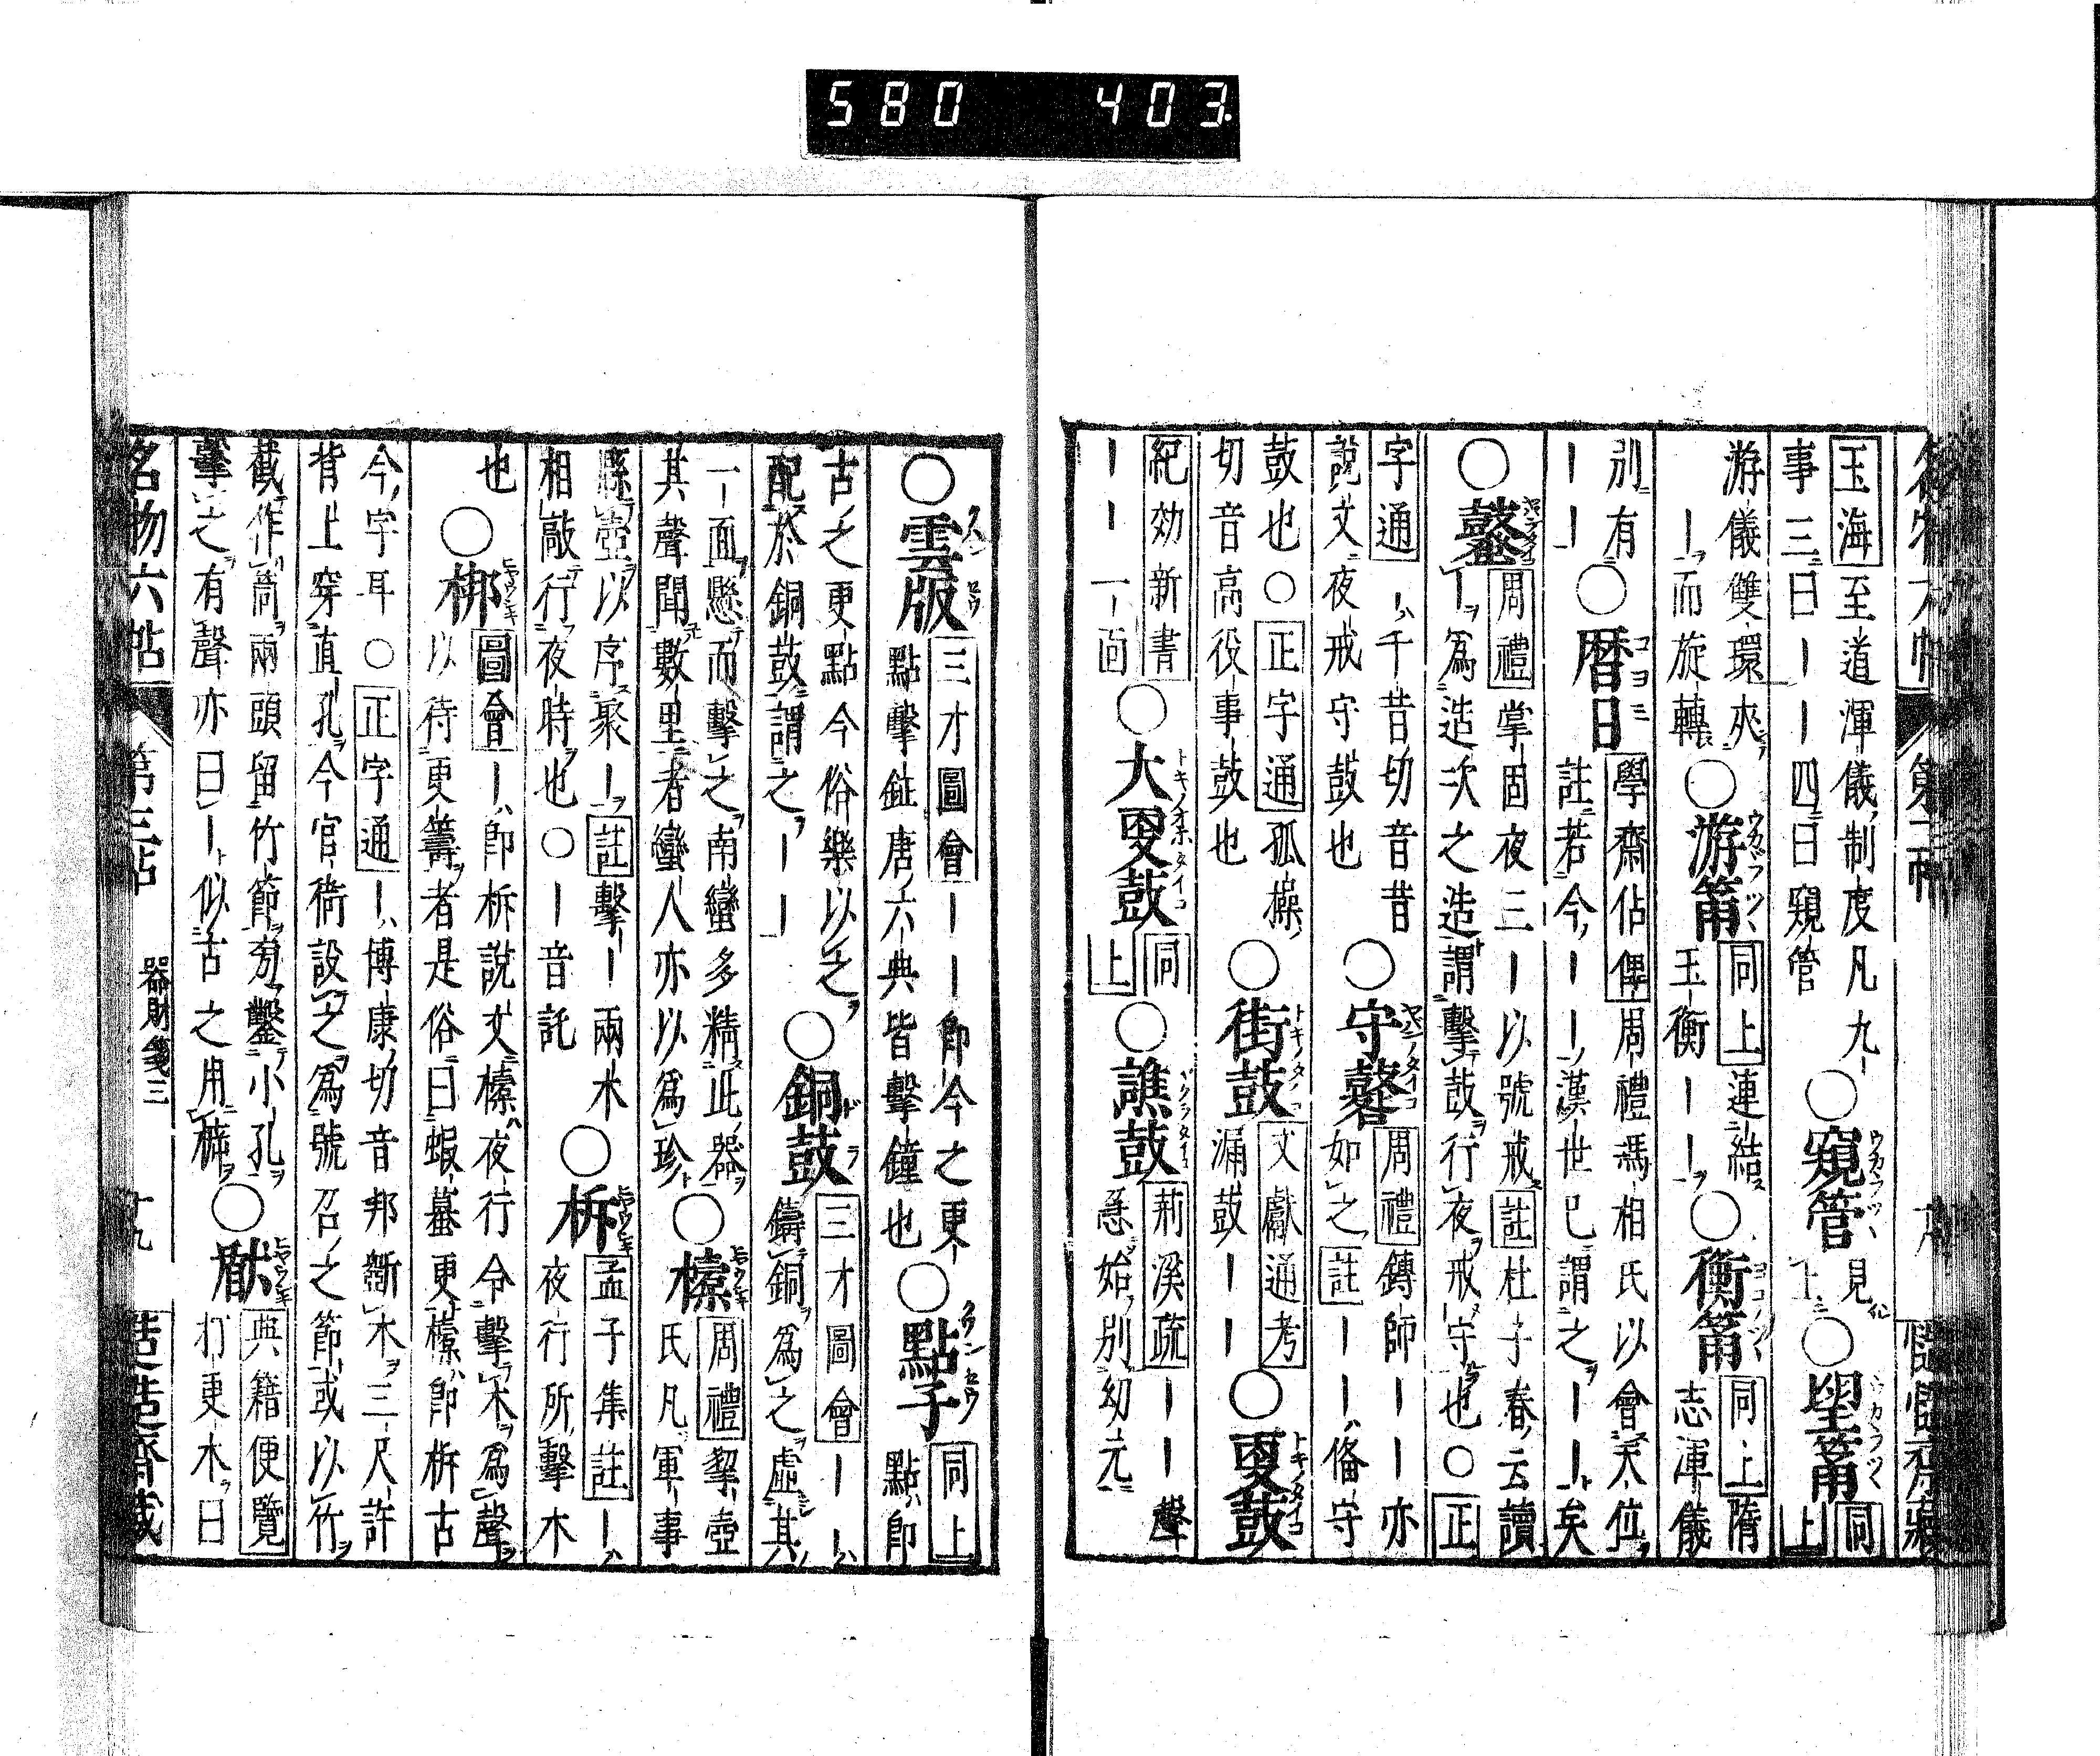 580 403.
玉海至道渾儀制度凡九
事三曰丨丨四曰窺管
○窺管見上
○望筩同上
游儀雙環夾
丨而旋轉
○游筩同上連結
玉衡丨丨
○衡筩同上隋
志渾儀
別有
丨丨
○暦日學齋佔俾周禮馮相氏以會天位
註若今丨丨漢世已謂之丨丨矣
○鼜周禮掌固夜三丨以號戒註杜子春云讀
丨為造次之造謂擊鼓行夜戒守也○正
字通丨千昔切音昔
說文夜戒守鼓也
○守鼜周禮鎛師丨丨亦
如之註丨丨備守
鼓也○正字通孤橾
切音高役事鼓也
○街鼓文獻通考
漏鼓丨丨丨
○更鼓
紀効新書
丨丨一面
○大更鼓同上
○譙鼓荊溪疏丨丨聲
急始別幼元
○雲版三才圖會丨丨即今之更
點擊鉦唐六典皆擊鐘也
○點子同上
點即
古之更點今俗樂以之
配於銅鼓謂之丨丨
○銅鼓三才圖會丨丨
鑄銅為之虛其
一面懸而擊之南蠻多精此器
其聲聞數里者蠻人亦以為珍
○㯿周禮挈壺
氏凡軍事
縣壺以序聚丨註擊丨兩木
相敲行夜時也○丨音託
○柝孟子集註丨
夜行所擊木
也
○梆圖會丨即柝說文㯿夜行令擊木為聲
以待更籌者是俗曰蝦蟇更㯿即柝古
今字耳○正字通丨博康切音邦斲木三尺許
背上穿直孔今官衙設之為號召之節或以竹
截作筒兩頭留竹節旁鑿小孔
擊之有聲亦曰丨似古之用柝
典籍便覽
打更木曰
名物六帖 第三帖 器財箋三 十九